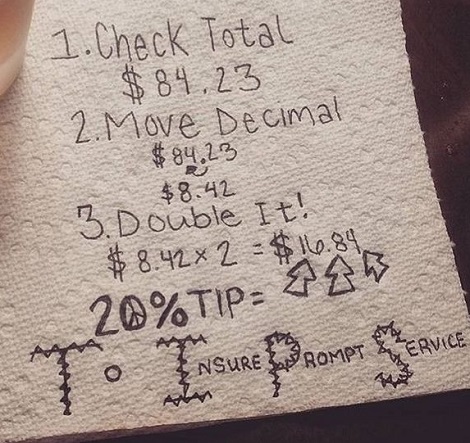 1. Check Total
$84.23
2. Move Decimal
$84.23
$8.42
3. Double It!
$8.42 x 2 = $16.84
20% TIP =
To Insure Prompt Service